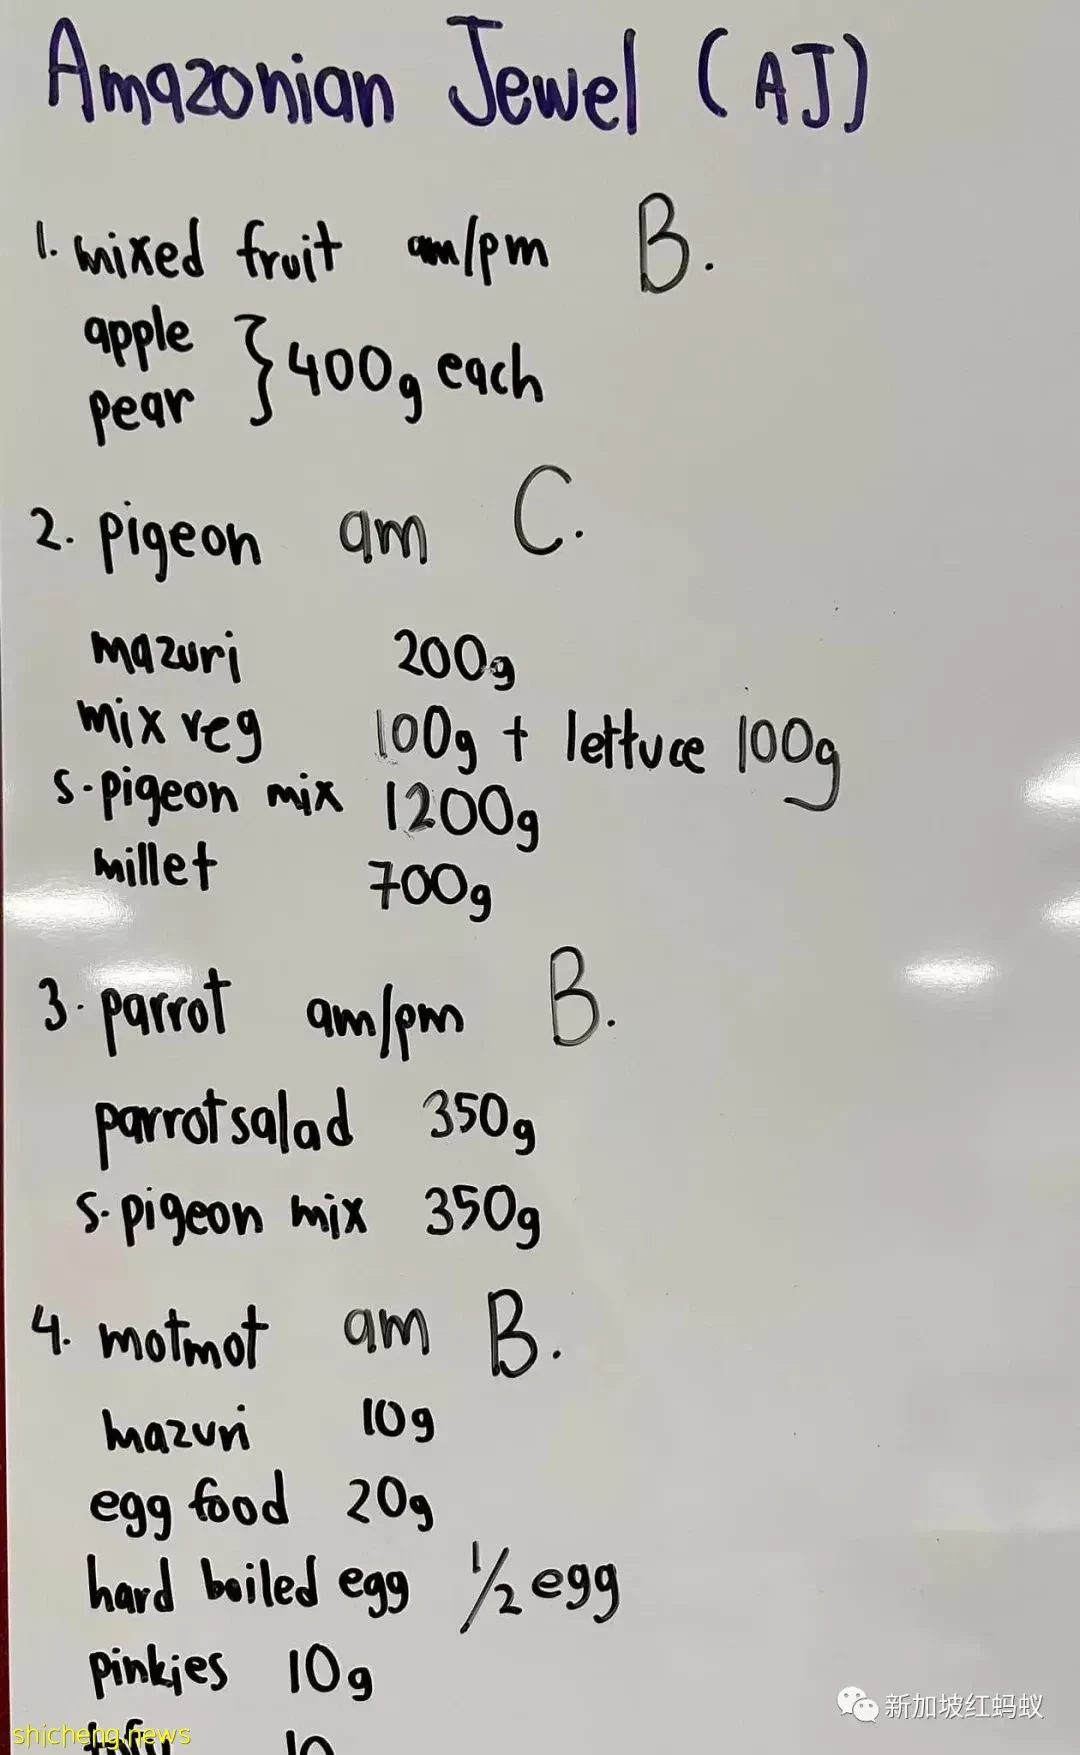 Amazonian Jewel (AJ)
1. mixed fruit am/pm B.
apple
pear } 400g each
2. pigeon am C.
mazuri 200g
mix veg 100g + lettuce 100g
s-pigeon mix 1200g
millet 700g
3. parrot am/pm B.
parrot salad 350g
s-pigeon mix 350g
4. motmot am B.
mazuri 10g
egg food 20g
hard boiled egg 1/2 egg
pinkies 10g
10
新加坡红蚂蚁
shicheng.news